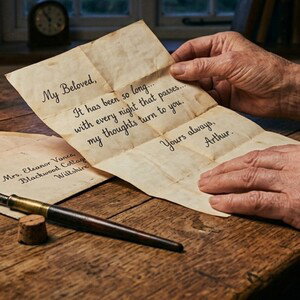 My Beloved,
It has been so long...
with every night that passes...
my thoughts turn to you.
Yours always,
Arthur.
Mrs. Eleanor Vance
Blackwood Cottage
Wiltshire